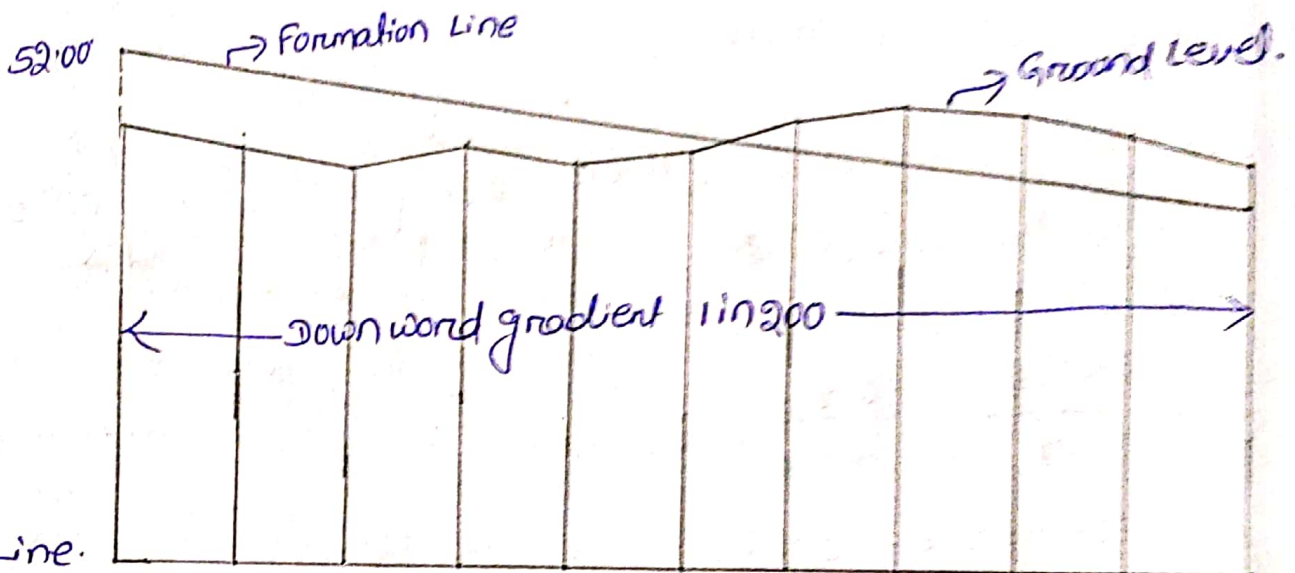 52.00
Formation Line
Ground Level.
Downword gradient 1 in 200
ine.